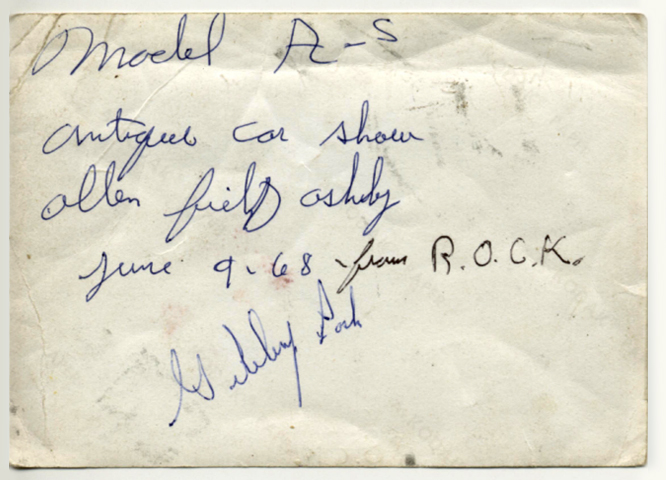 Model A-S
antique car show
allen field ashby
June 9-68 - from R.O.C.K.
Gibby Park